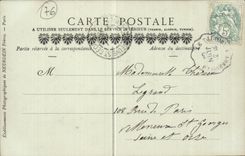 76
CARTE POSTALE
A UTILISER SEULEMENT DANS LE SERVICE INTÉRIEUR (FRANCE, ALGÉRIE, TUNISIE)
Partie réservée à la correspondance
Adresse du destinataire
M Mademoiselle Thérèse
Legrand
108 Rue de Paris
Villeneuve St Georges
Seine et Oise
Etablissements Photographiques de NEURDEIN Frères. — Paris